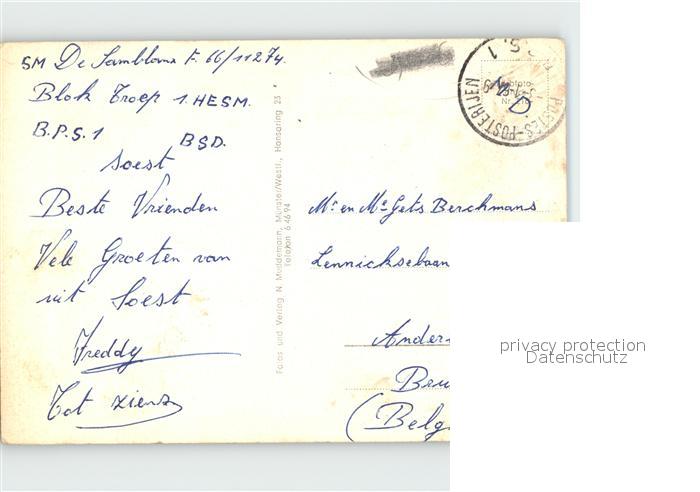 SM De Samblanx F. 66/11274.
Blok Troep 1. HESM.
B.P.S. 1
BSD.
Soest
Beste Vrienden
Vele Groeten van
uit Soest
Freddy
Tot ziens
Fotos und Verlag N. Muddemann, Münster/Westf., Hansaring 23
Telefon 6 46 94
POSTES-POSTERIJEN
1
M D.
Mr en Me Gets Berchmans
Lennicksebaan
Ander
Bru
(Belg
privacy protection
Datenschutz